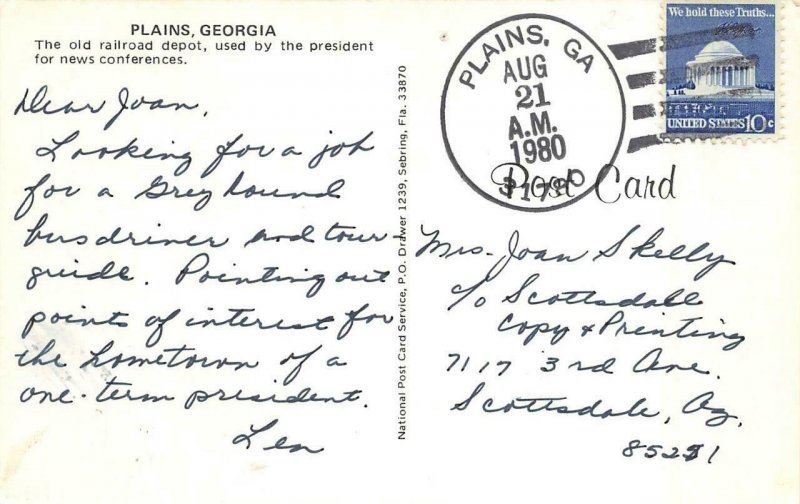 PLAINS, GEORGIA
The old railroad depot, used by the president
for news conferences.
Dear Joan,
Looking for a job
for a Greyhound
busdriver and tour-
guide. Pointing out
points of interest for
the hometown of a
one-term president.
Len
National Post Card Service, P.O. Drawer 1239, Sebring, Fla. 33870
PLAINS, GA
AUG
21
A.M.
1980
31780
We hold these Truths...
UNITED STATES 10c
Post Card
Mrs. Joan Skelly
c/o Scottsdale
Copy & Printing
7117 3rd Ave.
Scottsdale, Az.
85251